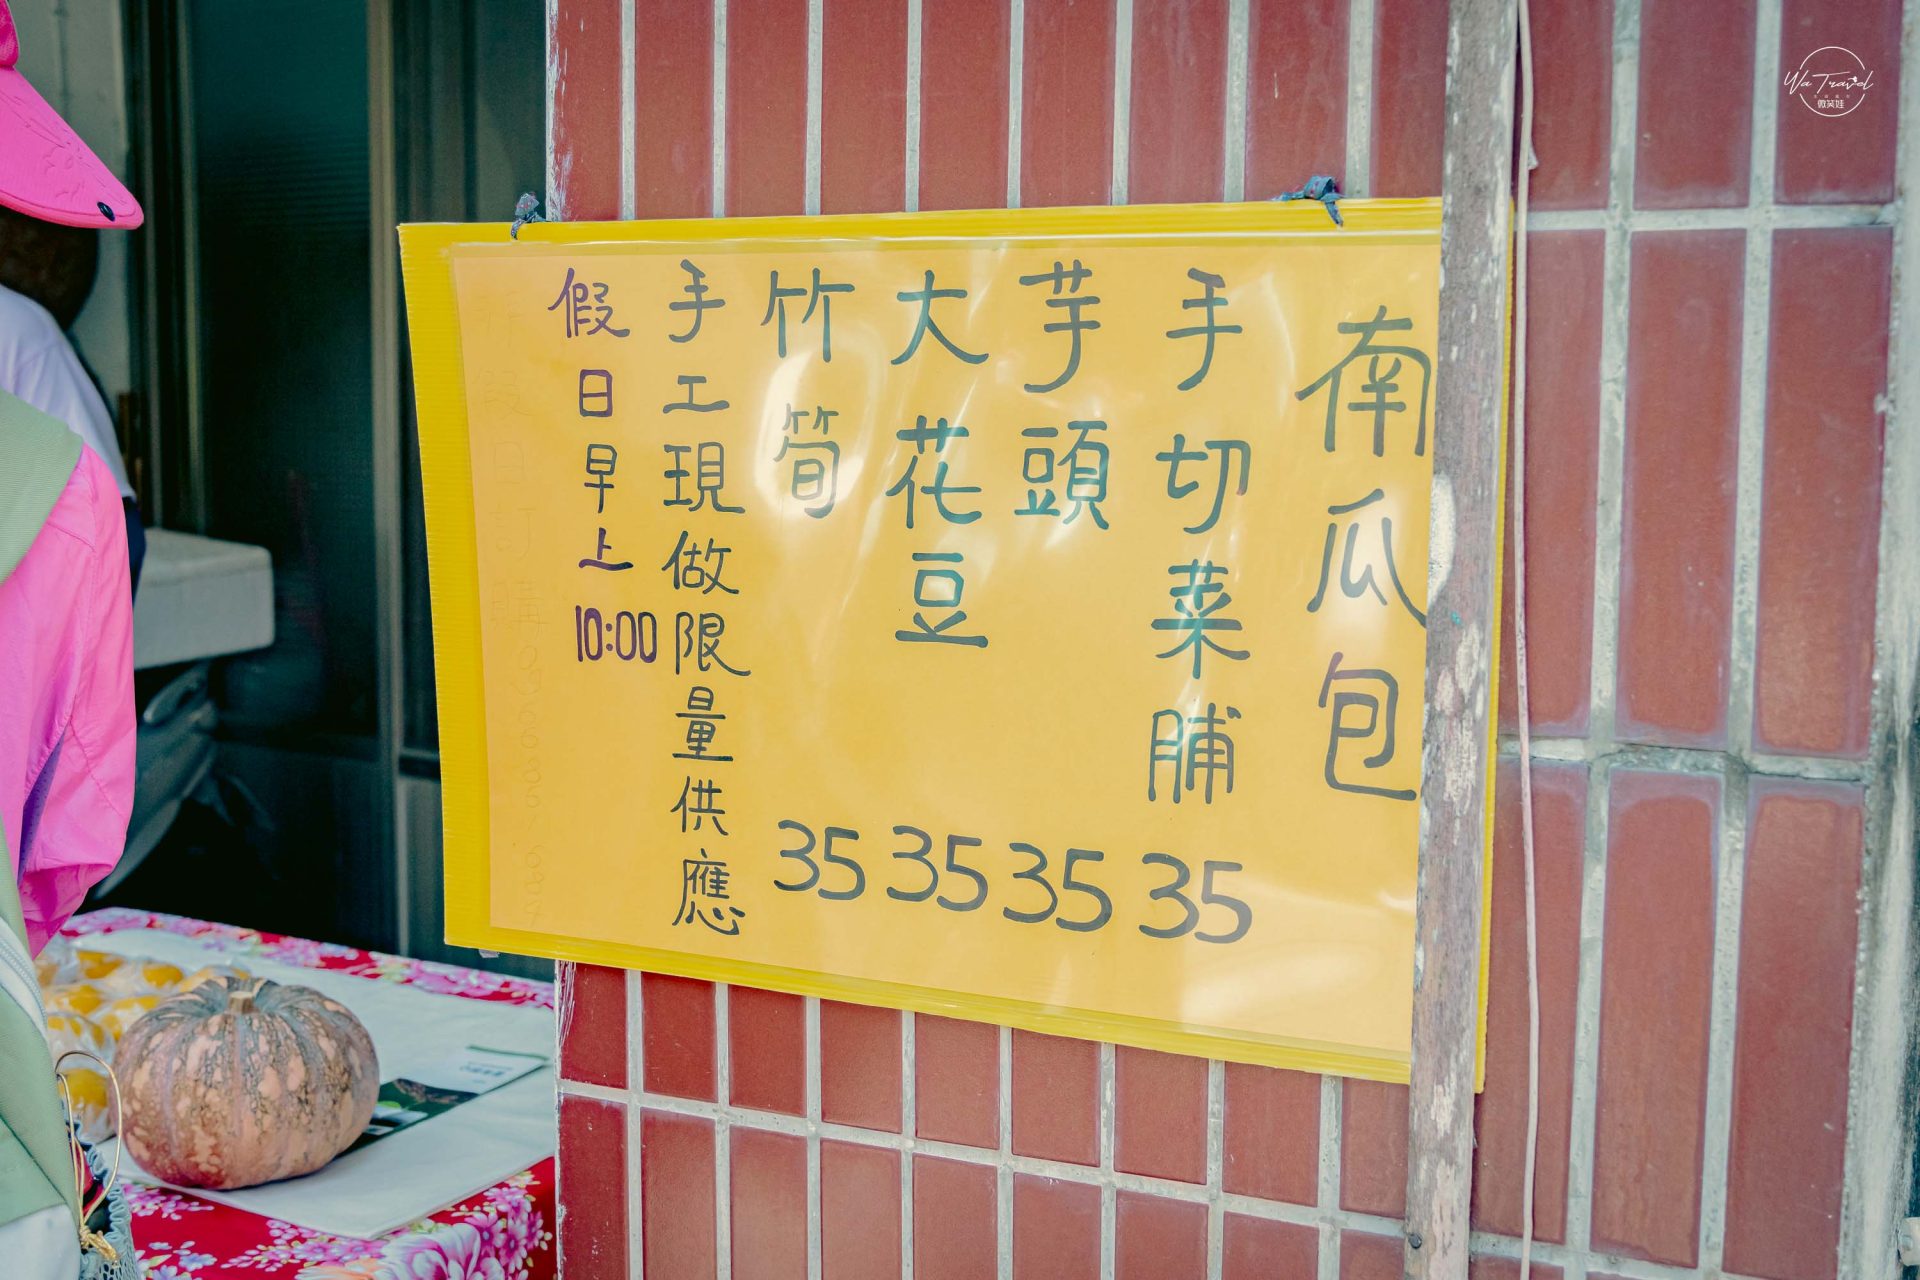 南瓜包
手切菜脯 35
芋頭 35
大花豆 35
竹筍 35
手工現做限量供應
假日早上10:00
Wa Travel
微笑娃